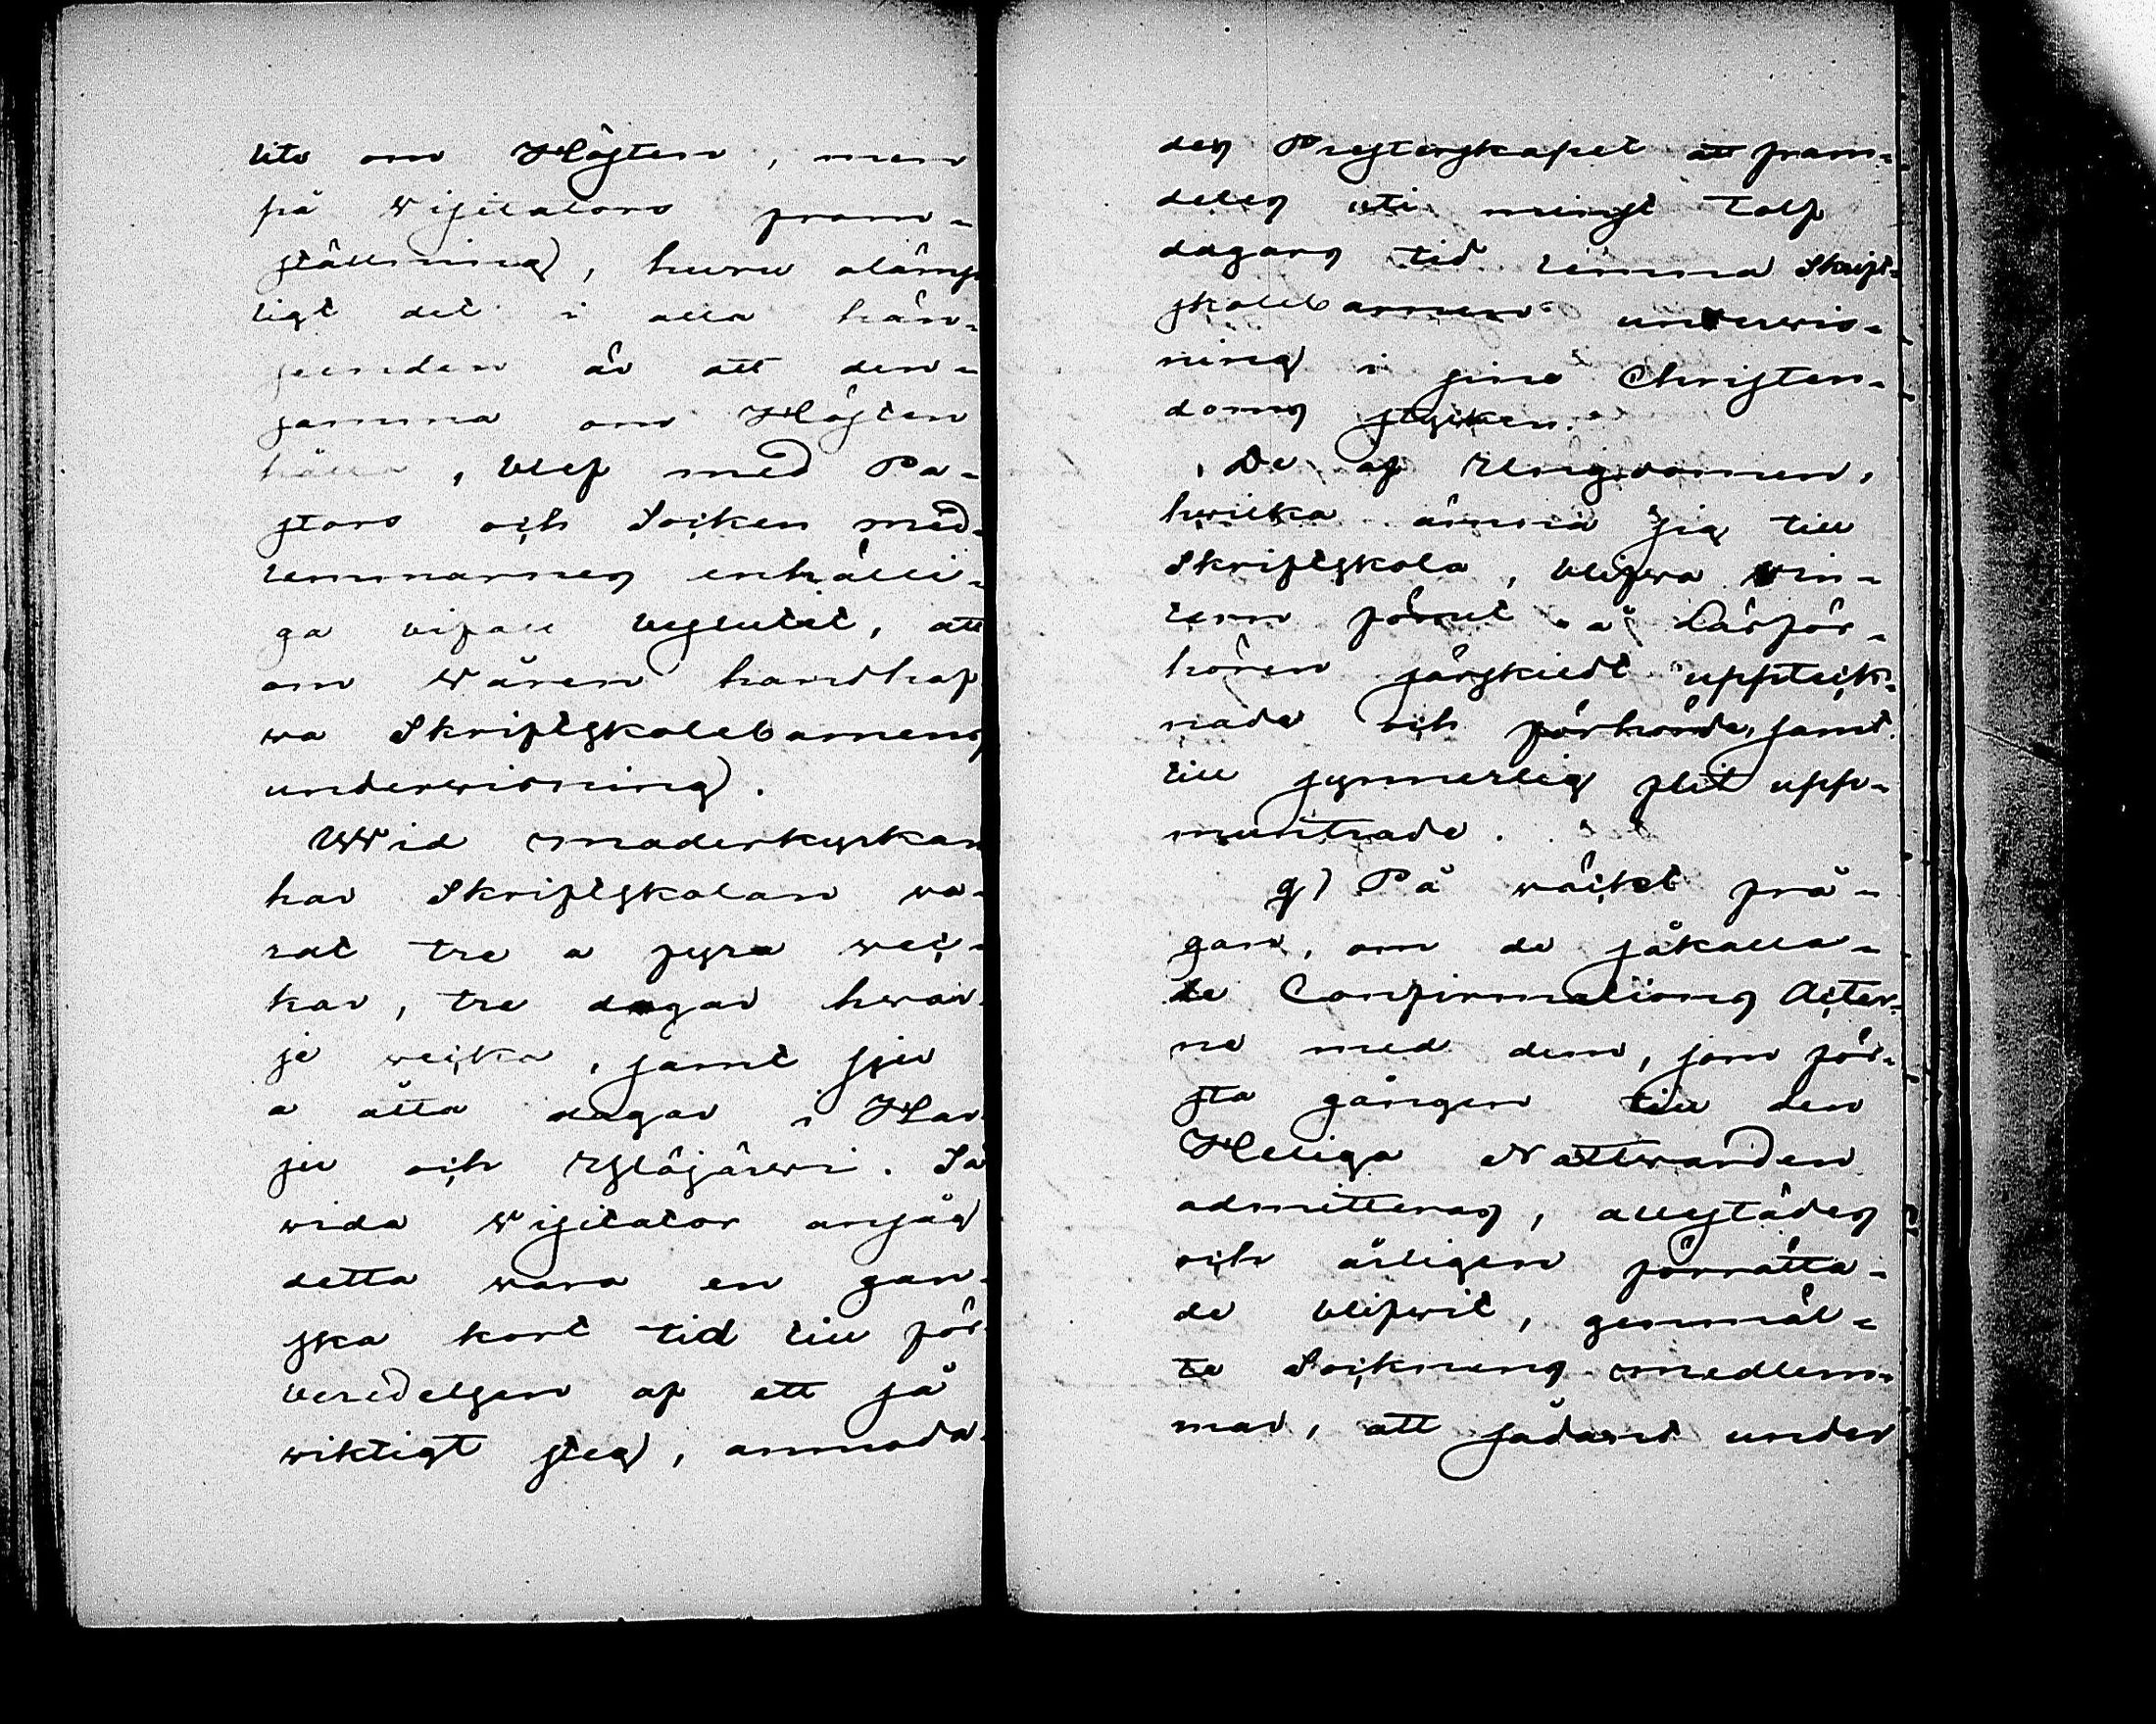 lito om Hösten, men
på Visitators fram-
ställning, huru olämp
ligt det i alla hän-
seenden är att den-
samma om Hösten
hålla, blef med Pa-
stors och Socken med-
lemmarnes enhälli-
ga bifall beslutit, att
om Våren handhaf
va Skriftskolebarnens
underwisning.
Wid moderkyrkan
har Skriftskolan va-
rat tre a fyra vec-
kor, tre dagar hvar-
je vecka, samt sju
a åtta dagar i Har
ju och Ylöjärvi. Så
vida Visitator ansåg
detta vara en gan-
ska kort tid till för
beredelsen af ett så
viktigt steg, anmoda-
des Presterskapet att fram-
deles uti minst tolf
dagars tid lemna Skrift-
skolebarnen underwis-
ning i sine Christen-
doms stycken.
De af Ungdomen,
hvilka ämna sig till
Skriftskola, blifva vin-
tern förut på Läsför-
hören särskildt uppteck-
nade och förhörde, samt
till synnerlig flit upp-
muntrade.
g) På väckt frå-
gan, om de såkalla-
de Confirmations Acter-
ne med dem, som för-
sta gången till den
Heliga Nattvarden
admitteras, allestädes
och årligen förrätta-
de blifvit, genmäl-
te Socknens medlem-
mar, att sådant under